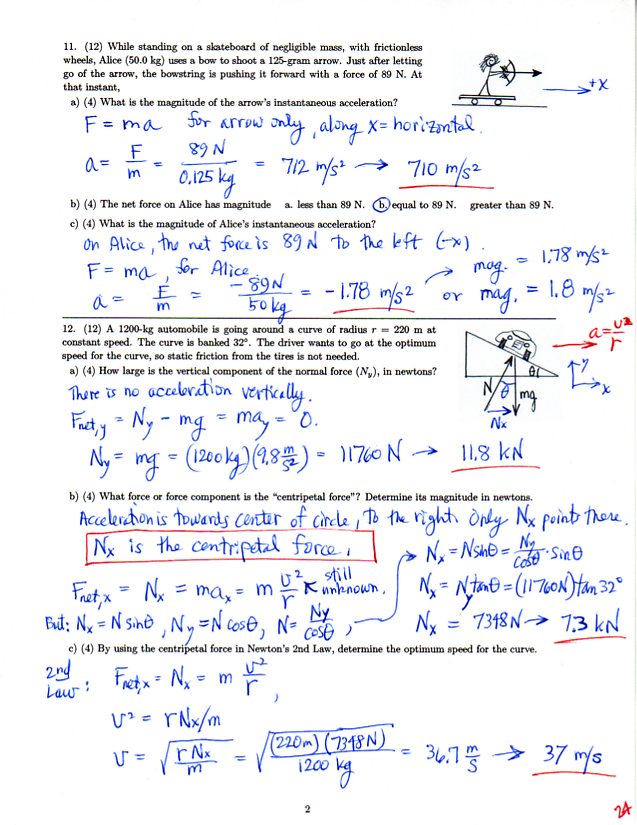 11. (12) While standing on a skateboard of negligible mass, with frictionless
wheels, Alice (50.0 kg) uses a bow to shoot a 125-gram arrow. Just after letting
go of the arrow, the bowstring is pushing it forward with a force of 89 N. At
that instant,
+x
a) (4) What is the magnitude of the arrow's instantaneous acceleration?
F = ma for arrow only, along x = horizontal.
a = F/m = 89 N / 0.125 kg = 712 m/s² → 710 m/s²
b) (4) The net force on Alice has magnitude a. less than 89 N. b. equal to 89 N. greater than 89 N.
c) (4) What is the magnitude of Alice's instantaneous acceleration?
On Alice, the net force is 89 N to the left (-x).
F = ma, for Alice. → mag. = 1.78 m/s²
a = F/m = -89 N / 50 kg = -1.78 m/s² or mag. = 1.8 m/s²
12. (12) A 1200-kg automobile is going around a curve of radius r = 220 m at
constant speed. The curve is banked 32°. The driver wants to go at the optimum
speed for the curve, so static friction from the tires is not needed.
a = v²/r
θ
y
x
N θ mg
Nx
a) (4) How large is the vertical component of the normal force (Ny), in newtons?
There is no acceleration vertically.
Fnet,y = Ny - mg = may = 0.
Ny = mg = (1200 kg)(9.8 m/s²) = 11760 N → 11.8 kN
b) (4) What force or force component is the "centripetal force"? Determine its magnitude in newtons.
Acceleration is towards center of circle, to the right. Only Nx points there.
Nx is the centripetal force.
→ Nx = N sinθ = Ny/cosθ · sinθ
Fnet,x = Nx = max = m v²/r ← still unknown.
Nx = Ny tanθ = (11760 N) tan 32°
But: Nx = N sinθ, Ny = N cosθ, N = Ny/cosθ,
Nx = 7348 N → 7.3 kN
c) (4) By using the centripetal force in Newton's 2nd Law, determine the optimum speed for the curve.
2nd Law: Fnet,x = Nx = m v²/r,
v² = r Nx/m
v = √(r Nx / m) = √((220 m)(7348 N) / 1200 kg) = 36.7 m/s → 37 m/s
2
24